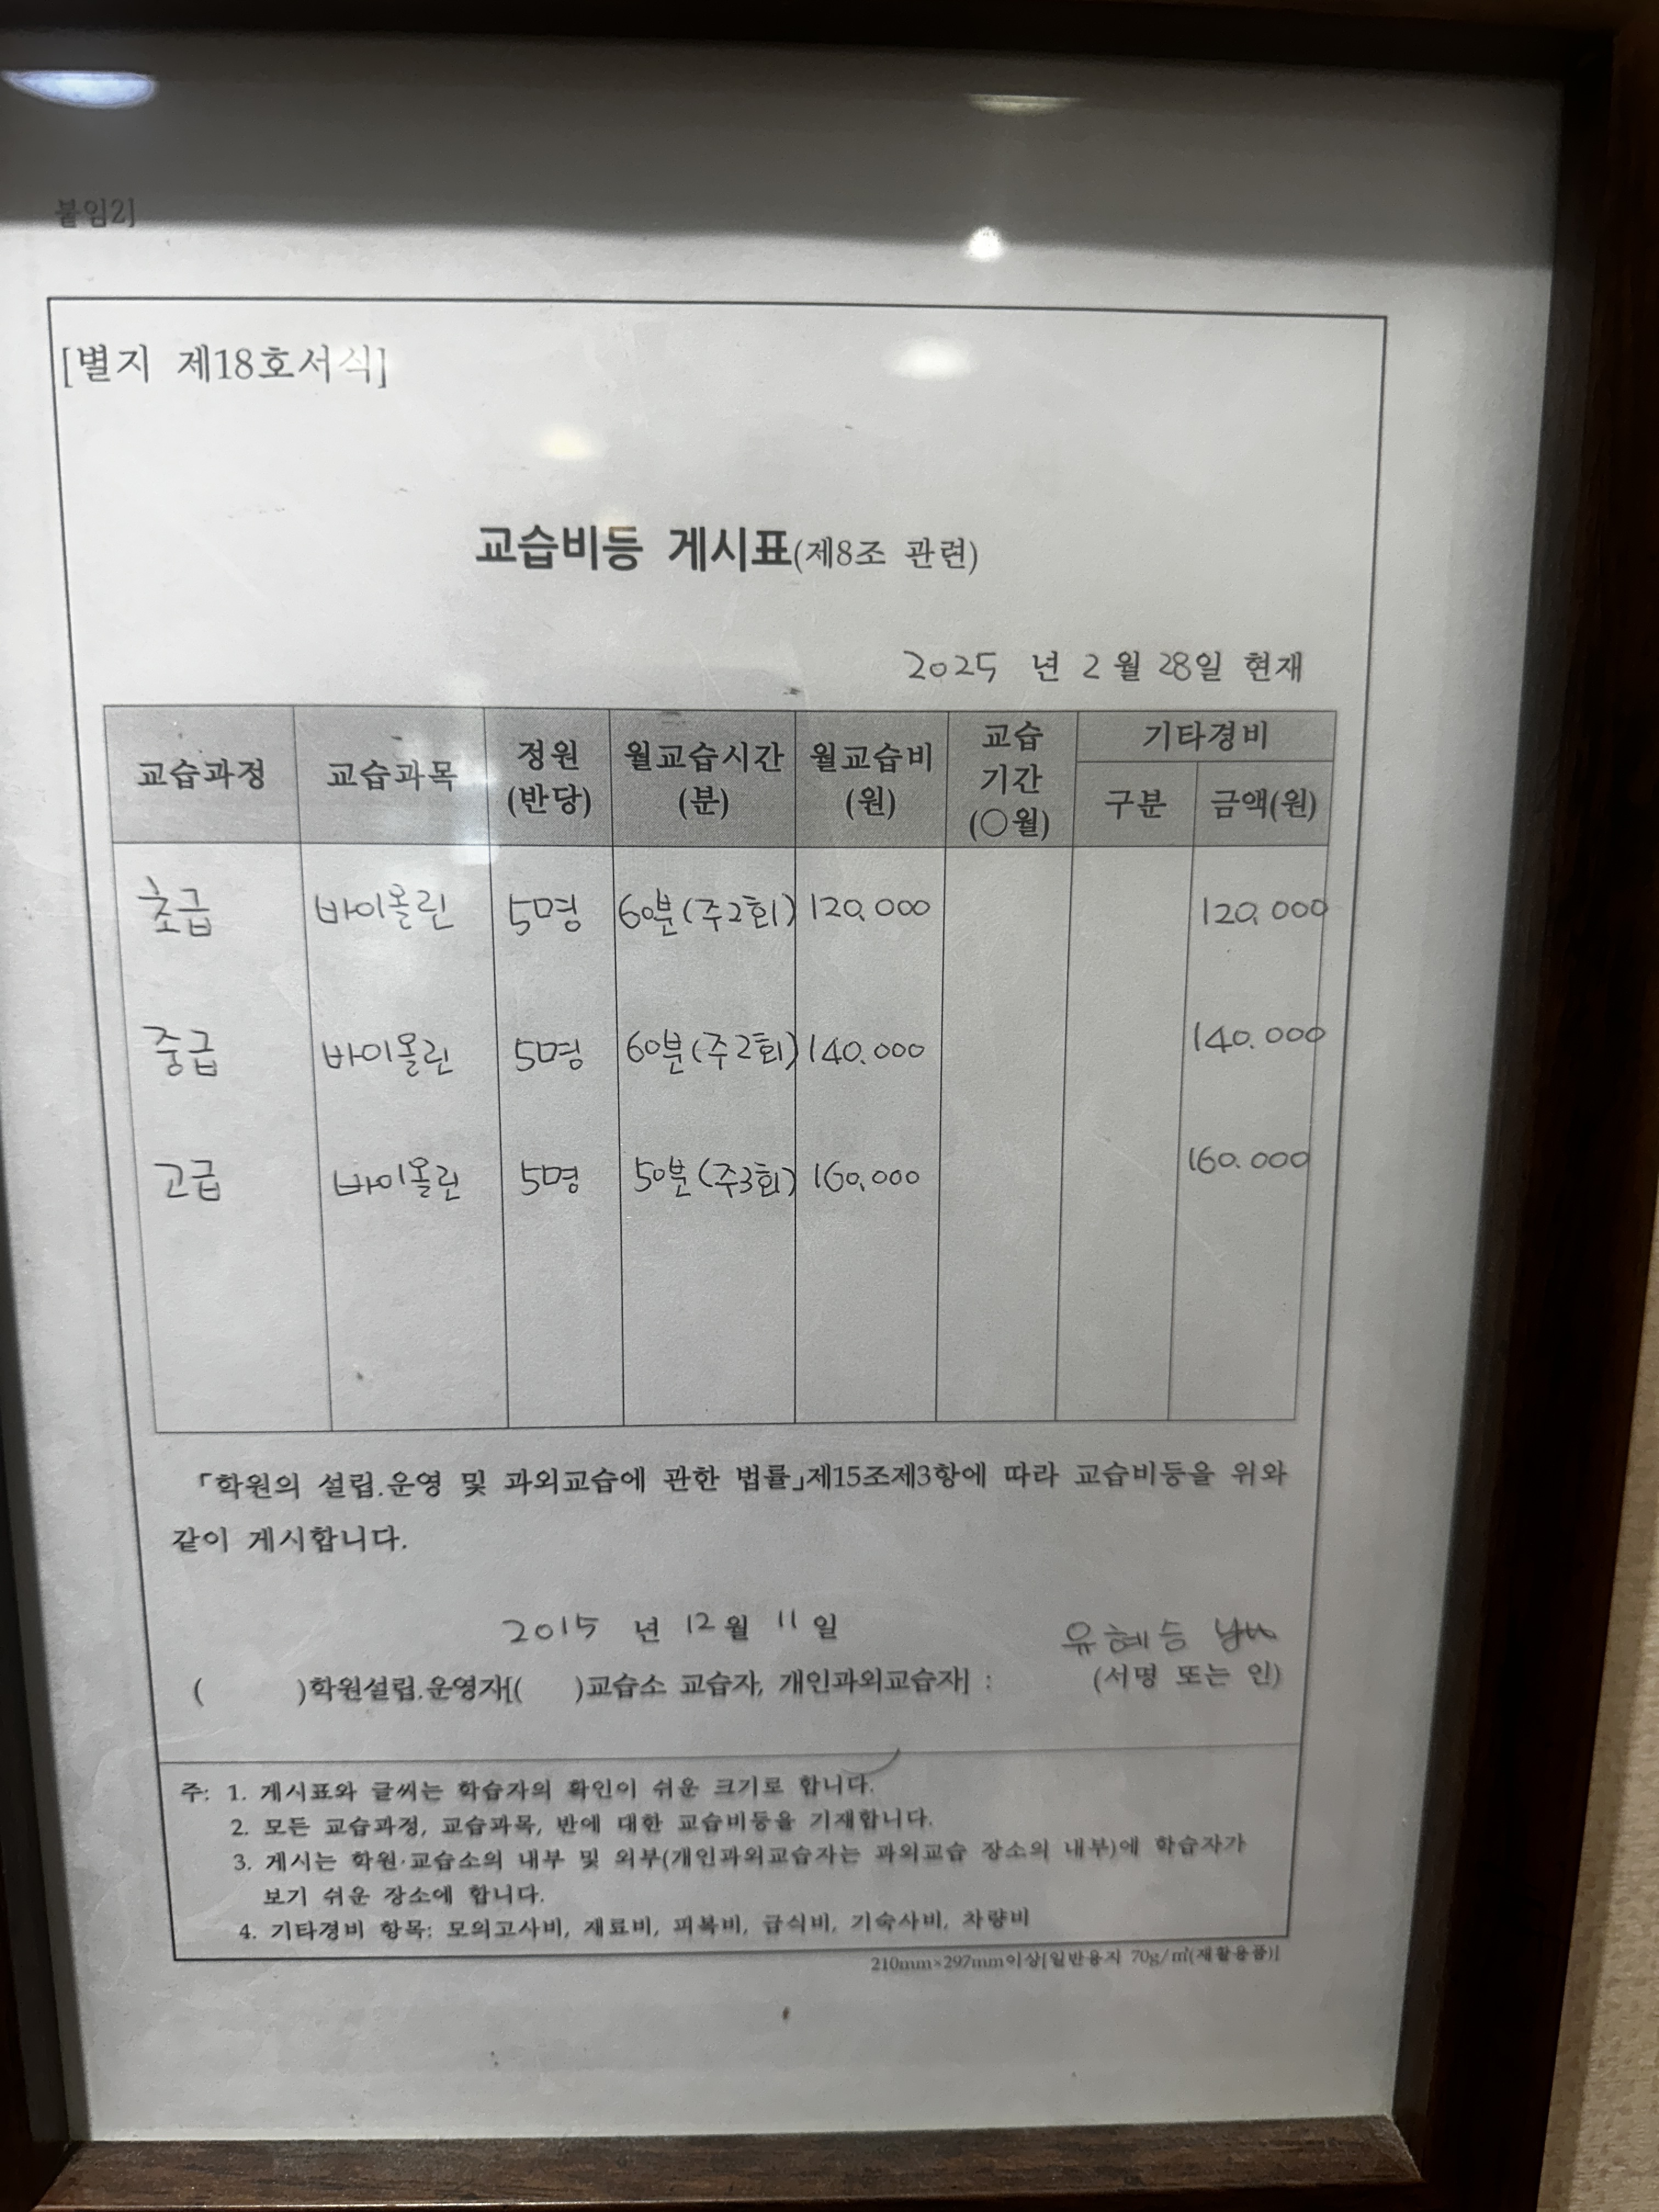 붙임2]
[별지 제18호서식]
교습비등 게시표(제8조 관련)
2025 년 2 월 28일 현재
교습과정 교습과목 정원 (반당) 월교습시간 (분) 월교습비 (원) 교습 기간 (○월) 기타경비 구분 금액(원)
초급 바이올린 5명 60분(주2회) 120,000 120,000
중급 바이올린 5명 60분(주2회) 140,000 140,000
고급 바이올린 5명 50분(주3회) 160,000 160,000
「학원의 설립.운영 및 과외교습에 관한 법률」제15조제3항에 따라 교습비등을 위와
같이 게시합니다.
2015 년 12월 11일
유혜승
( )학원설립.운영자[( )교습소 교습자, 개인과외교습자] : (서명 또는 인)
주: 1. 게시표와 글씨는 학습자의 확인이 쉬운 크기로 합니다.
2. 모든 교습과정, 교습과목, 반에 대한 교습비등을 기재합니다.
3. 게시는 학원·교습소의 내부 및 외부(개인과외교습자는 과외교습 장소의 내부)에 학습자가
보기 쉬운 장소에 합니다.
4. 기타경비 항목: 모의고사비, 재료비, 피복비, 급식비, 기숙사비, 차량비
210mm×297mm이상[일반용지 70g/㎡(재활용품)]